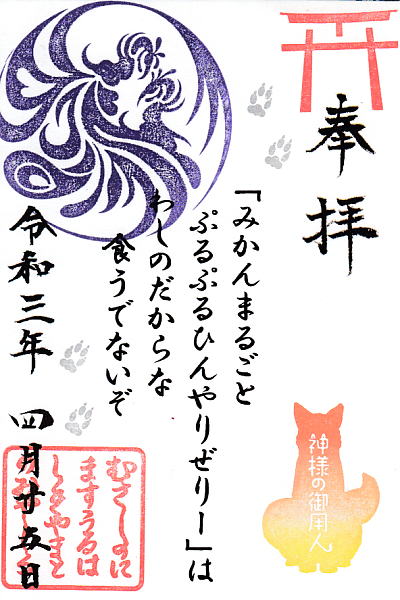 奉拝
「みかんまるごと
ぷるぷるひんやりぜりー」は
わしのだからな
食うでないぞ
令和三年 四月廿五日
神様の御用人
むさしのに
ますうるは